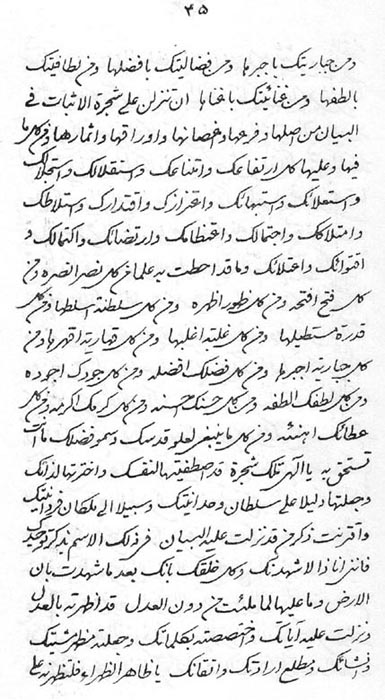 ٣٥
ومن جباريتك باجبرها ومن فضاليتك بافضلها ومن لطافيتك
بالطفها ومن غنائيتك باغناها ان تنزلن على شجرة الاثبات في
البيان من اصلها وفرعها واغصانها واوراقها واثمارها ومن كل ما
فيها وعليها كل ارتفاعك وامتناعك واستقلالك واستجلالك
واستعلائك واستبهائك واعتزازك واقتدارك واستلاطك
وامتلاكك واجتمالك واعتظامك وارتضائك واكتمالك و
اقتوائك واعتلائك وما قد احطت به علما من كل نصر انصره ومن
كل فتح افتحه ومن كل ظهور اظهره ومن كل سلطنة اسلطها ومن كل
قدرة مستطيلها ومن كل غلبة اغلبها ومن كل قهارية اقهرها ومن
كل جبارية اجبرها ومن كل فضلك افضله ومن كل جودك اجوده
ومن كل لطفك الطفه ومن كل حسنك احسنه ومن كل كرمك اكرمه ومن كل
عطائك اهنئه ومن كل ما ينبغي لعلو قدسك وسمو فضلك ما انت
تستحق به يا الهي تلك شجرة قد اصطفيتها لنفسك واخترتها لذاتك
وجعلتها دليلا على سلطان وحدانيتك وسبيلا الى مليكان فردانيتك
واقرنت ذكر من قد نزلت عليه البيان في ذلك الاسم بذكر توحيدك
فانني انا ذا لاشهدنك وكل خلقك بانك بعد ما شهدت بان
الارض وما عليها لما ملئت من دون العدل قد اظهرته بالعدل
ونزلت عليه آياتك واختصصته بكلماتك وجعلته مظهر مشيتك
ومنشائك ومطلع ارادتك واتقانك يا ظاهر الظهراء فلتظهرنه على